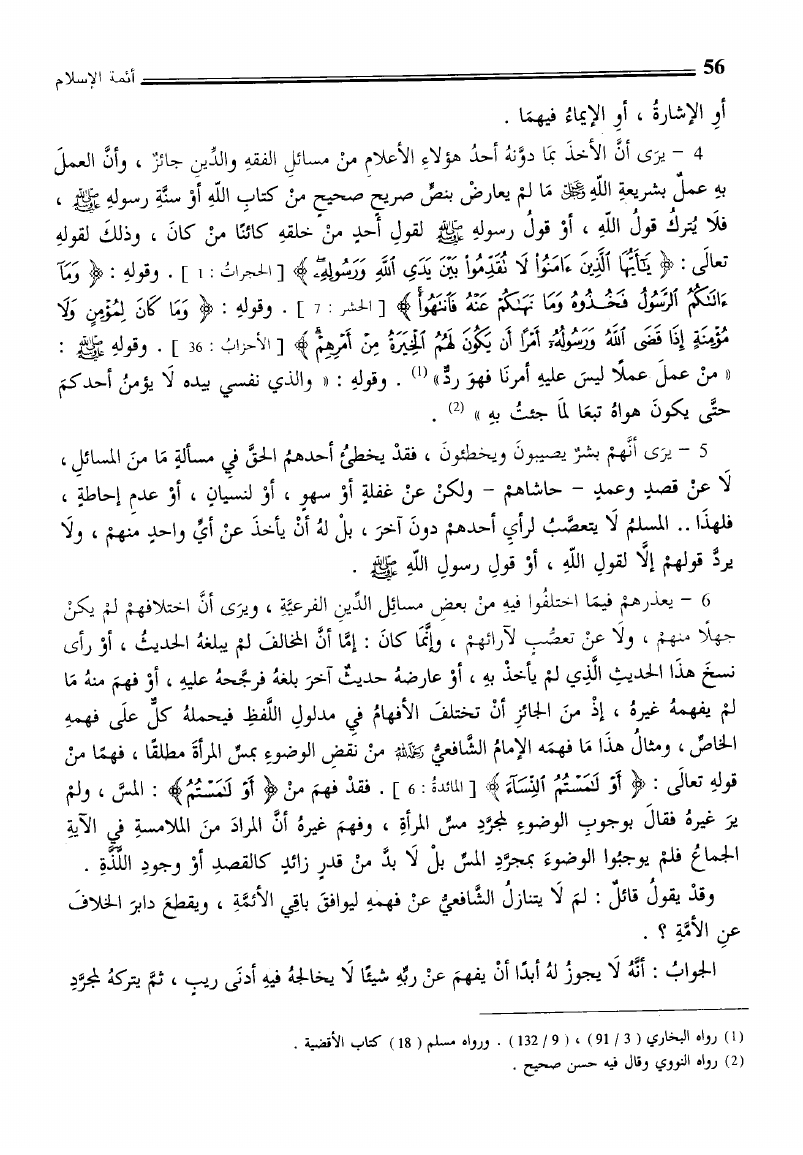 56
أئمة الإسلام
أوِ الإشارةُ ، أوِ الإيماءُ فيهمَا .
4 – يرَى أنَّ الأخذَ بمَا دوَّنهُ أحدُ هؤلاءِ الأعلامِ منْ مسائلِ الفقهِ والدِّينِ جائزٌ ، وأنَّ العملَ
بهِ عملٌ بشريعةِ اللَّهِ ﷻ مَا لمْ يعارضْ بنصٍّ صريحٍ صحيحٍ منْ كتابِ اللَّهِ أوْ سنَّةِ رسولهِ ﷺ ،
فلَا يُتركُ قولُ اللَّهِ ، أوْ قولُ رسولهِ ﷺ لقولِ أحدٍ منْ خلقهِ كائنًا منْ كانَ ، وذلكَ لقولهِ
تعالَى : ﴿ يَٰٓأَيُّهَا ٱلَّذِينَ ءَامَنُوا۟ لَا تُقَدِّمُوا۟ بَيْنَ يَدَىِ ٱللَّهِ وَرَسُولِهِۦ ﴾ [ الحجراتُ : 1 ] . وقولهِ : ﴿ وَمَآ
ءَاتَىٰكُمُ ٱلرَّسُولُ فَخُذُوهُ وَمَا نَهَىٰكُمْ عَنْهُ فَٱنتَهُوا۟ ﴾ [ الحشر : 7 ] . وقولهِ : ﴿ وَمَا كَانَ لِمُؤْمِنٍ وَلَا
مُؤْمِنَةٍ إِذَا قَضَى ٱللَّهُ وَرَسُولُهُۥٓ أَمْرًا أَن يَكُونَ لَهُمُ ٱلْخِيَرَةُ مِنْ أَمْرِهِمْ ﴾ [ الأحزابُ : 36 ] . وقولهِ ﷺ :
« منْ عملَ عملًا ليسَ عليهِ أمرنَا فهوَ ردٌّ» (1) . وقولهِ : « والذي نفسي بيده لَا يؤمنُ أحدكمَ
حتَّى يكونَ هواهُ تبعَا لمَا جئتُ بهِ » (2) .
5 – يرَى أنَّهمْ بشرٌ يصيبونَ ويخطئونَ ، فقدْ يخطئُ أحدهمُ الحقَّ في مسألةٍ مَا منَ المسائلِ ،
لَا عنْ قصدٍ وعمدٍ – حاشاهمْ – ولكنْ عنْ غفلةٍ أوْ سهوٍ ، أوْ لنسيانٍ ، أوْ عدمِ إحاطةٍ ،
فلهذَا .. المسلمُ لَا يتعصَّبُ لرأيِ أحدهمْ دونَ آخرَ ، بلْ لهُ أنْ يأخذَ عنْ أيِّ واحدٍ منهمْ ، ولَا
يردَّ قولهمْ إلَّا لقولِ اللَّهِ ، أوْ قولِ رسولِ اللَّهِ ﷺ .
6 – يعذرهمْ فيمَا اختلفُوا فيهِ منْ بعضِ مسائلِ الدِّينِ الفرعيَّةِ ، ويرَى أنَّ اختلافهمْ لمْ يكنْ
جهلًا منهمْ ، ولَا عنْ تعصُّبٍ لآرائهمْ ، وإنَّمَا كانَ : إمَّا أنَّ المخالفَ لمْ يبلغهُ الحديثُ ، أوْ رأى
نسخَ هذَا الحديثِ الَّذي لمْ يأخذْ بهِ ، أوْ عارضهُ حديثٌ آخرَ بلغهُ فرجَّحهُ عليهِ ، أوْ فهمَ منهُ مَا
لمْ يفهمهُ غيرهُ ، إذْ منَ الجائزِ أنْ تختلفَ الأفهامُ في مدلولِ اللَّفظِ فيحملهُ كلٌّ علَى فهمهِ
الخاصِّ ، ومثالُ هذَا مَا فهمَه الإمامُ الشَّافعيُّ رحمه الله منْ نقضِ الوضوءِ بمسِّ المرأةِ مطلقًا ، فهمًا منْ
قولهِ تعالَى : ﴿ أَوْ لَٰمَسْتُمُ ٱلنِّسَآءَ ﴾ [ المائدةُ : 6 ] . فقدْ فهمَ منْ ﴿ أَوْ لَٰمَسْتُمُ ﴾ : المسَّ ، ولمْ
يرَ غيرهُ فقالَ بوجوبِ الوضوءِ لمجرَّدِ مسِّ المرأةِ ، وفهمَ غيرهُ أنَّ المرادَ منَ الملامسةِ في الآيةِ
الجماعُ فلمْ يوجبُوا الوضوءَ بمجرَّدِ المسِّ بلْ لَا بدَّ منْ قدرٍ زائدٍ كالقصدِ أوْ وجودِ اللَّذَّةِ .
وقدْ يقولُ قائلٌ : لمَ لَا يتنازلُ الشَّافعيُّ عنْ فهمهِ ليوافقَ باقِي الأئمَّةِ ، ويقطعَ دابرَ الخلافَ
عنِ الأمَّةِ ؟ .
الجوابُ : أنَّهُ لَا يجوزُ لهُ أبدًا أنْ يفهمَ عنْ ربِّهِ شيئًا لَا يخالجهُ فيهِ أدنَى ريبٍ ، ثمَّ يتركهُ لمجرَّدِ
(1) رواه البخاري ( 3 / 91 ) ، ( 9 / 132 ) . ورواه مسلم ( 18 ) كتاب الأقضية .
(2) رواه النووي وقال فيه حسن صحيح .